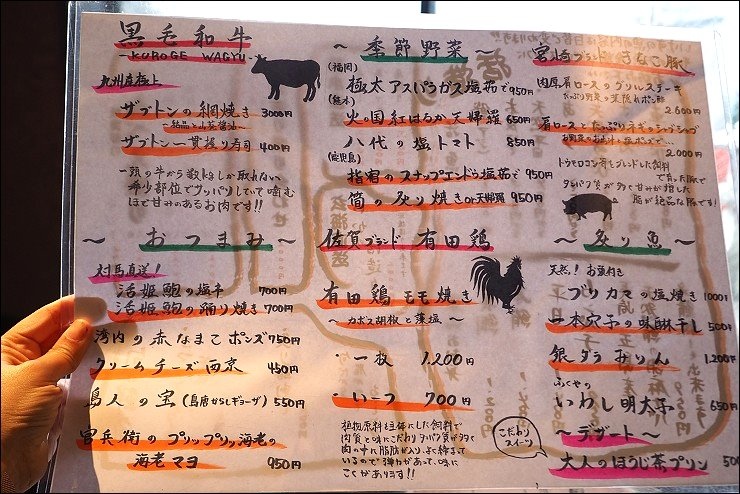 黒毛和牛
~KUROGE WAGYU~
九州産極上
ザブトンの網焼き 3000円
ザブトン一貫握り寿司 400円
一頭の牛から数kgしか取れない
希少部位でサッパリしていて噛む
ほど甘みのあるお肉です!!
~ おつまみ ~
対馬直送!
活姫鮑の塩辛 700円
活姫鮑の踊り焼き 700円
湾内の赤なまこポンズ 750円
クリームチーズ西京 450円
鳥人の宝(島唐がらしギョーザ) 550円
官兵衛のプリップリッ海老の
海老マヨ 950
~ 季節野菜 ~
(福岡)
極太アスパラガス塩茹で 950円
(熊本)
火の国紅はるか天婦羅 650円
八代の塩トマト 850円
(鹿児島)
指宿のスナップエンドウ塩茹で 950円
筍の炙り焼きor天婦羅 950円
佐賀ブランド 有田鶏
有田鶏モモ焼き
~カボス胡椒と藻塩~
・一枚 1,200円
・1/2 700円
植物原料を主体にした飼料で
肉質と味にこだわり
肉の中に脂肪が入り、よく締まって
いるので弾力があって、味に
こくがあります!!
宮崎ブランドきなこ豚
肉厚肩ロースのグリルステーキ
2,600円
肩ロースとたっぷりネギのシャブシャブ
2,000円
トウモロコシ等をブレンドした飼料
で育った豚で
甘みが増した
脂が絶品な豚です!
~ 炙り魚 ~
天然! お頭付き
ブリカマの塩焼き 1000円
一本穴子の味醂干し 500円
銀ダラみりん 1,200円
ふくやの
いわし明太子 650円
~デザート~
こだわり
スイーツ
大人のほうじ茶プリン 500